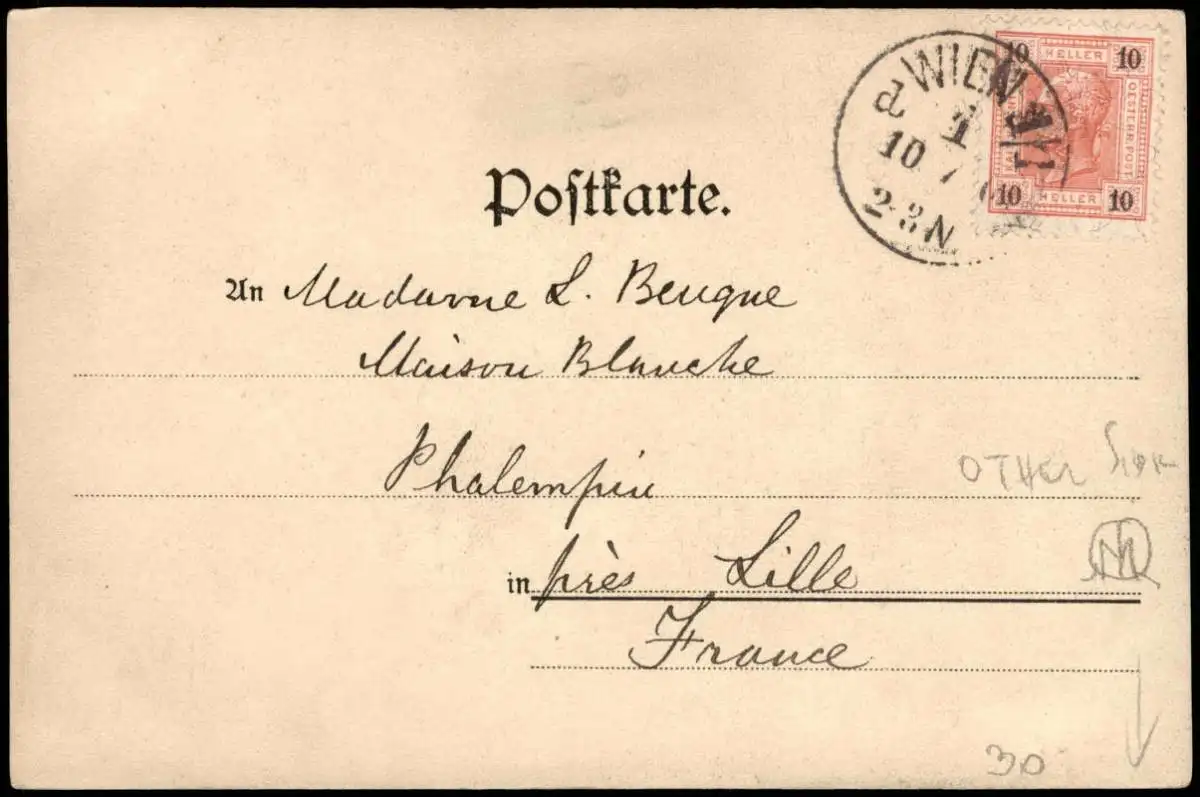 WIEN
1
10 7
2-3N
10 HELLER 10
OESTERR. POST
10 HELLER 10
Postkarte.
An Madame L. Beugne
Maison Blanche
Phalempin
in près Lille
France
OTHER
30